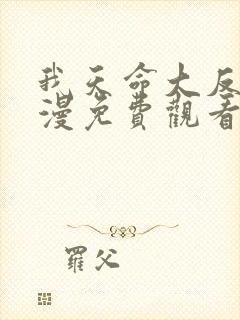 我天命大反
漫免費觀看
羅父